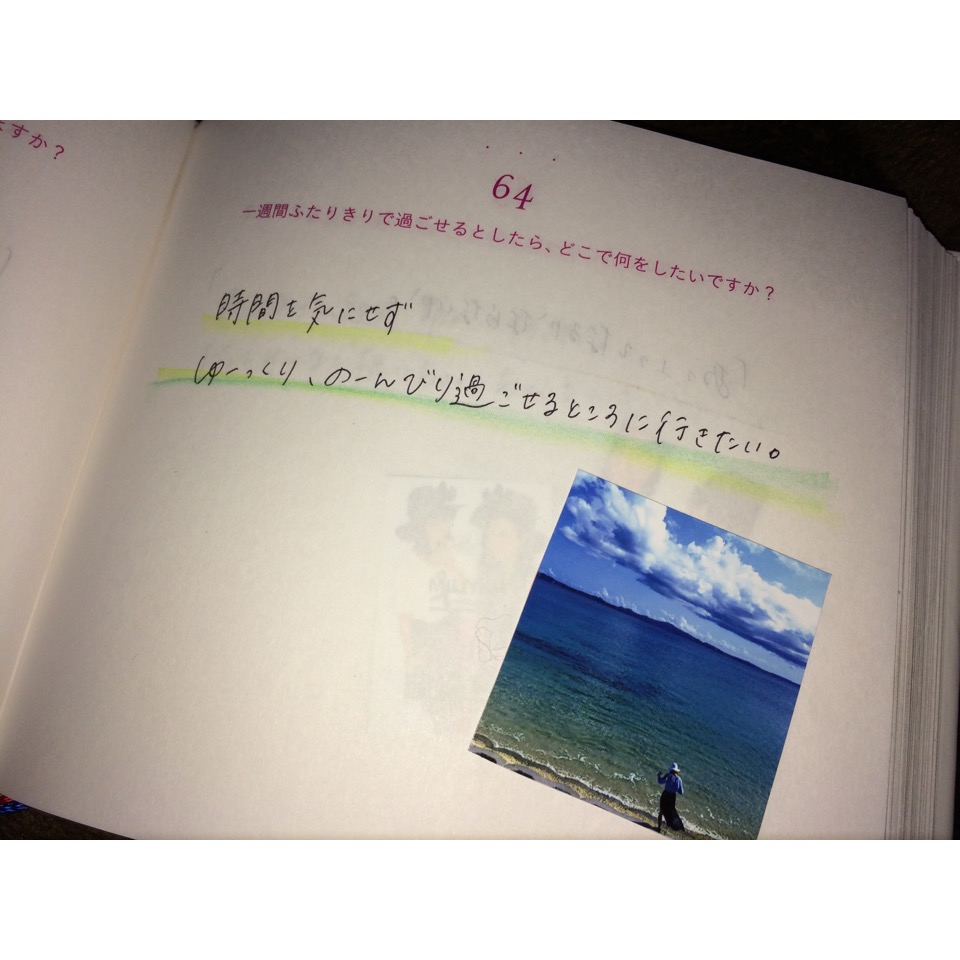 ますか？
64
一週間ふたりきりで過ごせるとしたら、どこで何をしたいですか？
時間を気にせず
ゆーっくり、のーんびり過ごせるところに行きたい。